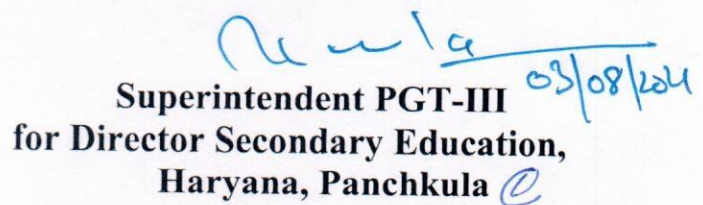 03/08/2021
Superintendent PGT-III
for Director Secondary Education,
Haryana, Panchkula